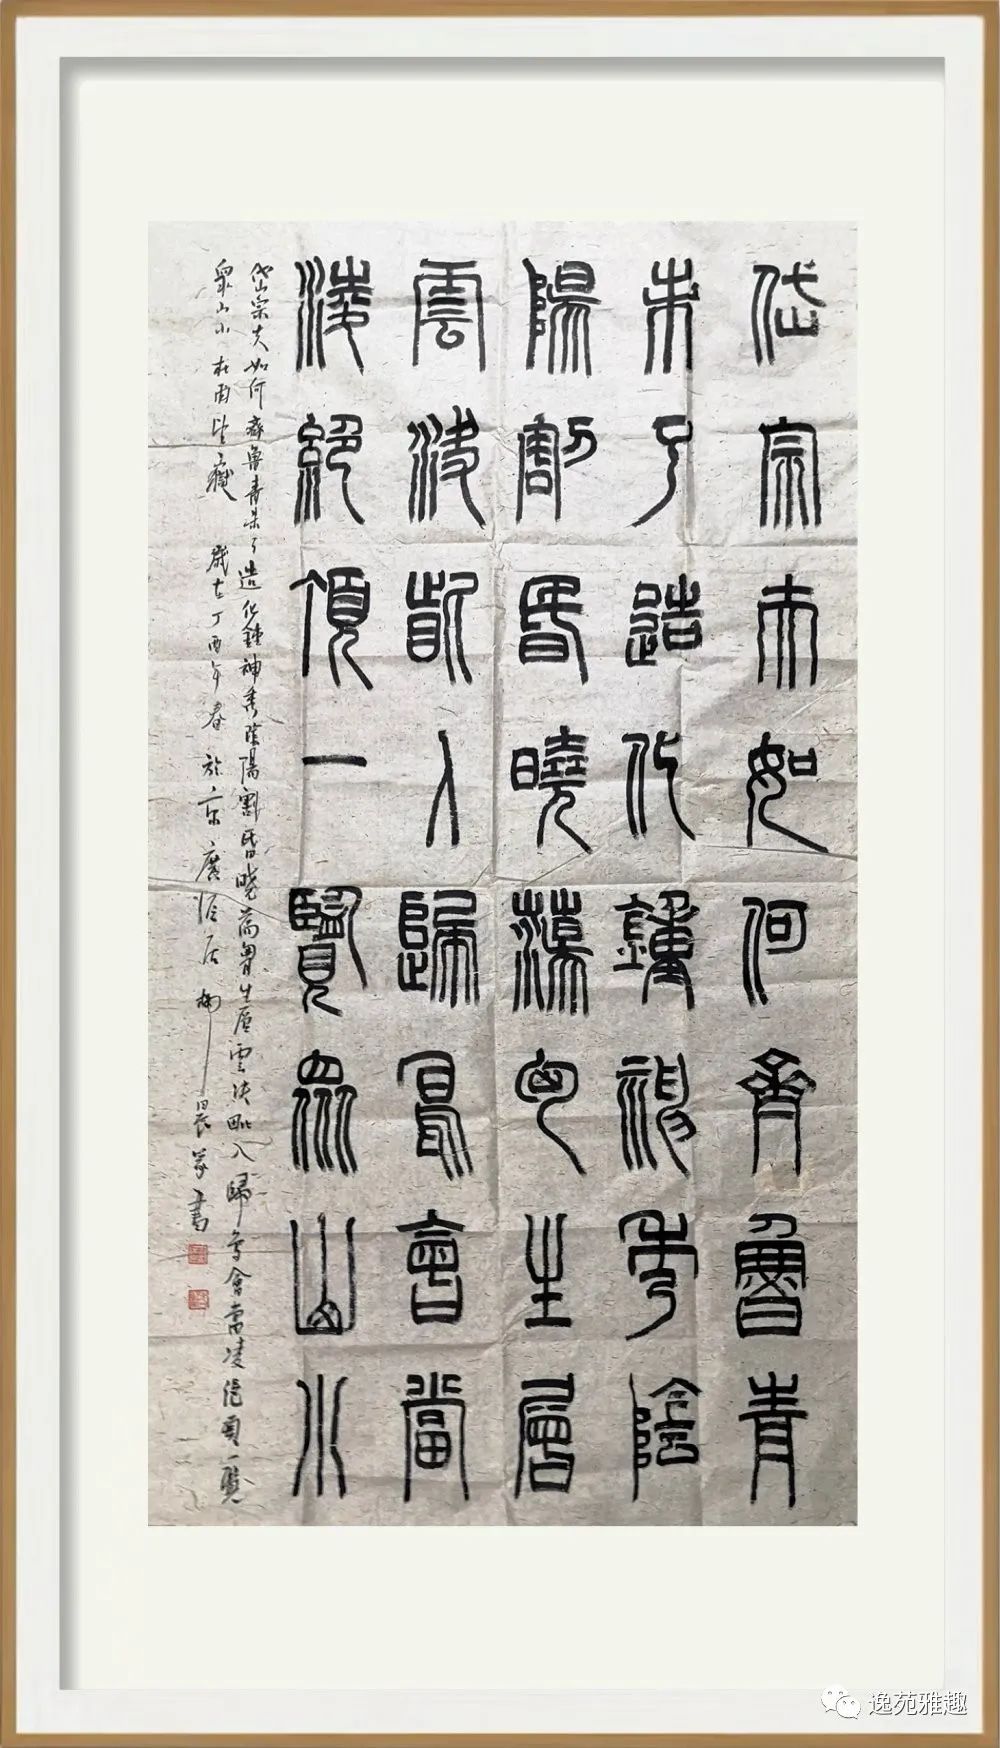 岱宗夫如何齊魯青
未了造化鍾神秀陰
陽割昏曉蕩胸生層
雲決眥入歸鳥會當
淩絕頂一覽眾山小
岱宗夫如何齊魯青未了造化鍾神秀陰陽割昏曉蕩胷生層雲決眦入歸鳥會當凌絕頂一覽
眾山小 杜甫望嶽 歲在丁酉年春於京廣 居 晨篆書
逸苑雅趣